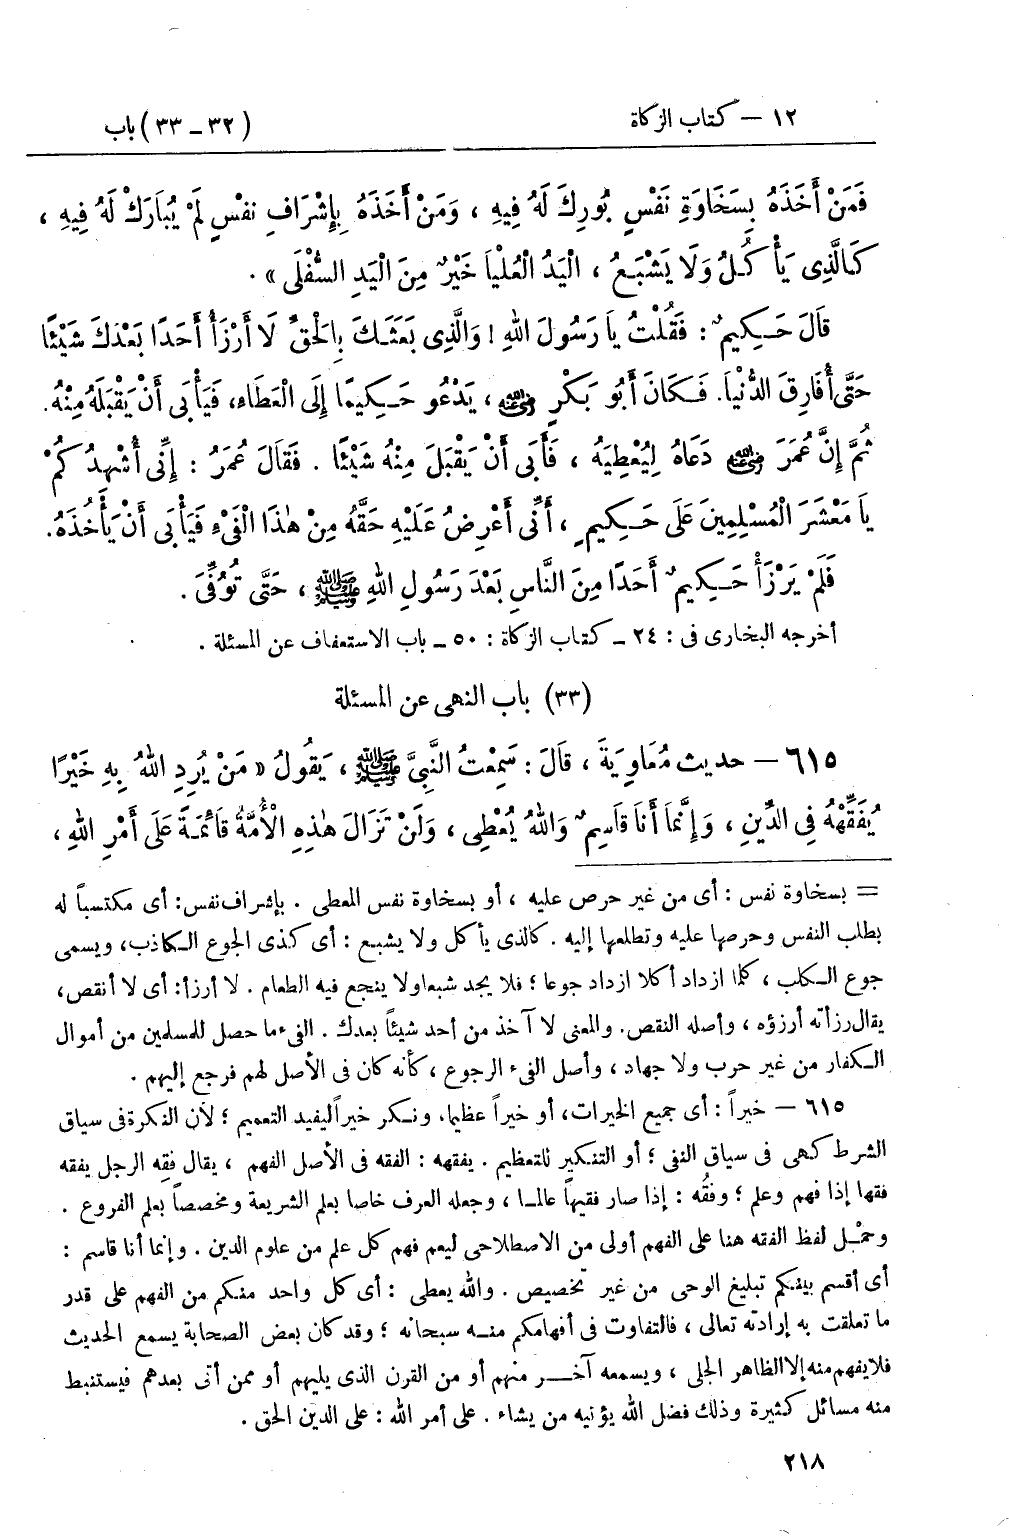 ١٢ — كتاب الزكاة
(٣٢ ـ ٣٣) باب
فَمَنْ أَخَذَهُ بِسَخَاوَةِ نَفْسٍ بُورِكَ لَهُ فِيهِ ، وَمَنْ أَخَذَهُ بِإِشْرَافِ نَفْسٍ لَمْ يُبَارَكْ لَهُ فِيهِ ،
كَالَّذِى يَأْكُلُ وَلَا يَشْبَعُ ، الْيَدُ الْعُلْيَا خَيْرٌ مِنَ الْيَدِ السُّفْلَى » .
قَالَ حَكِيمٌ : فَقُلْتُ يَا رَسُولَ اللهِ ! وَالَّذِى بَعَثَكَ بِالْحَقِّ لَا أَرْزَأُ أَحَدًا بَعْدَكَ شَيْئًا
حَتَّى أُفَارِقَ الدُّنْيَا. فَكَانَ أَبُو بَكْرٍ رضي الله عنه ، يَدْعُو حَكِيمًا إِلَى الْعَطَاءِ، فَيَأْبَى أَنْ يَقْبَلَهُ مِنْهُ.
ثُمَّ إِنَّ عُمَرَ رضي الله عنه دَعَاهُ لِيُعْطِيَهُ ، فَأَبَى أَنْ يَقْبَلَ مِنْهُ شَيْئًا . فَقَالَ عُمَرُ : إِنِّى أُشْهِدُكُمْ
يَا مَعْشَرَ الْمُسْلِمِينَ عَلَى حَكِيمٍ ، أَنِّى أَعْرِضُ عَلَيْهِ حَقَّهُ مِنْ هٰذَا الْفَىْءِ فَيَأْبَى أَنْ يَأْخُذَهُ.
فَلَمْ يَرْزَأْ حَكِيمٌ أَحَدًا مِنَ النَّاسِ بَعْدَ رَسُولِ اللهِ ﷺ ، حَتَّى تُوُفِّىَ .
أخرجه البخارى فى : ٢٤ ـ كتاب الزكاة : ٥٠ ـ باب الاستعفاف عن المسئلة .
(٣٣) باب النهى عن المسئلة
٦١٥ — حديث مُعَاوِيَةَ ، قَالَ : سَمِعْتُ النَّبِىَّ ﷺ ، يَقُولُ « مَنْ يُرِدِ اللهُ بِهِ خَيْرًا
يُفَقِّهْهُ فِى الدِّينِ ، وَإِنَّمَا أَنَا قَاسِمٌ وَاللهُ يُعْطِى ، وَلَنْ تَزَالَ هٰذِهِ الْأُمَّةُ قَائِمَةً عَلَى أَمْرِ اللهِ ،
= بسخاوة نفس : أى من غير حرص عليه ، أو بسخاوة نفس المعطى . بإشراف نفس: أى مكتسباً له
بطلب النفس وحرصها عليه وتطلعها إليه . كالذى يأكل ولا يشبع : أى كذى الجوع الكاذب، ويسمى
جوع الكلب ، كلما ازداد أكلا ازداد جوعا ؛ فلا يجد شبعا ولا ينجع فيه الطعام . لا أرزأ: أى لا أنقص،
يقال رزأته أرزؤه ، وأصله النقص. والمعنى لا آخذ من أحد شيئاً بعدك . الفىء ما حصل للمسلمين من أموال
الكفار من غير حرب ولا جهاد ، وأصل الفىء الرجوع ، كأنه كان فى الأصل لهم فرجع إليهم .
٦١٥ — خيراً : أى جميع الخيرات، أو خيراً عظيما. ونكر خيراً ليفيد التعميم ؛ لأن النكرة فى سياق
الشرط كهى فى سياق النفى ؛ أو التنكير للتعظيم . يفقهه : الفقه فى الأصل الفهم ، يقال فقِه الرجل يفقه
فقها إذا فهم وعلم ؛ وفقُه : إذا صار فقيهاً عالما ، وجعله العرف خاصا بعلم الشريعة ومخصصاً بعلم الفروع .
وحمْل لفظ الفقه هنا على الفهم أولى من الاصطلاحى ليعم فهم كل علم من علوم الدين . وإنما أنا قاسم :
أى أقسم بينكم تبليغ الوحى من غير تخصيص . والله يعطى : أى كل واحد منكم من الفهم على قدر
ما تعلقت به إرادته تعالى ، فالتفاوت فى أفهامكم منه سبحانه ؛ وقد كان بعض الصحابة يسمع الحديث
فلا يفهم منه إلا الظاهر الجلى ، ويسمعه آخر منهم أو من القرن الذى يليهم أو ممن أتى بعدهم فيستنبط
منه مسائل كثيرة وذلك فضل الله يؤتيه من يشاء . على أمر الله : على الدين الحق .
٢١٨